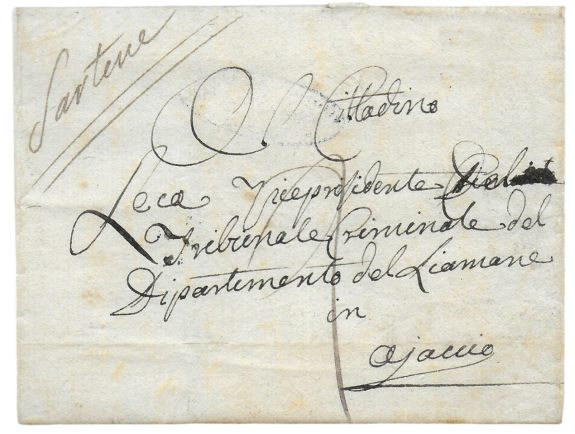 Sartene
Al Cittadino
Leca Vicepresidente del
Tribunale Criminale del
Dipartimento del Liamone
in
ajaccio